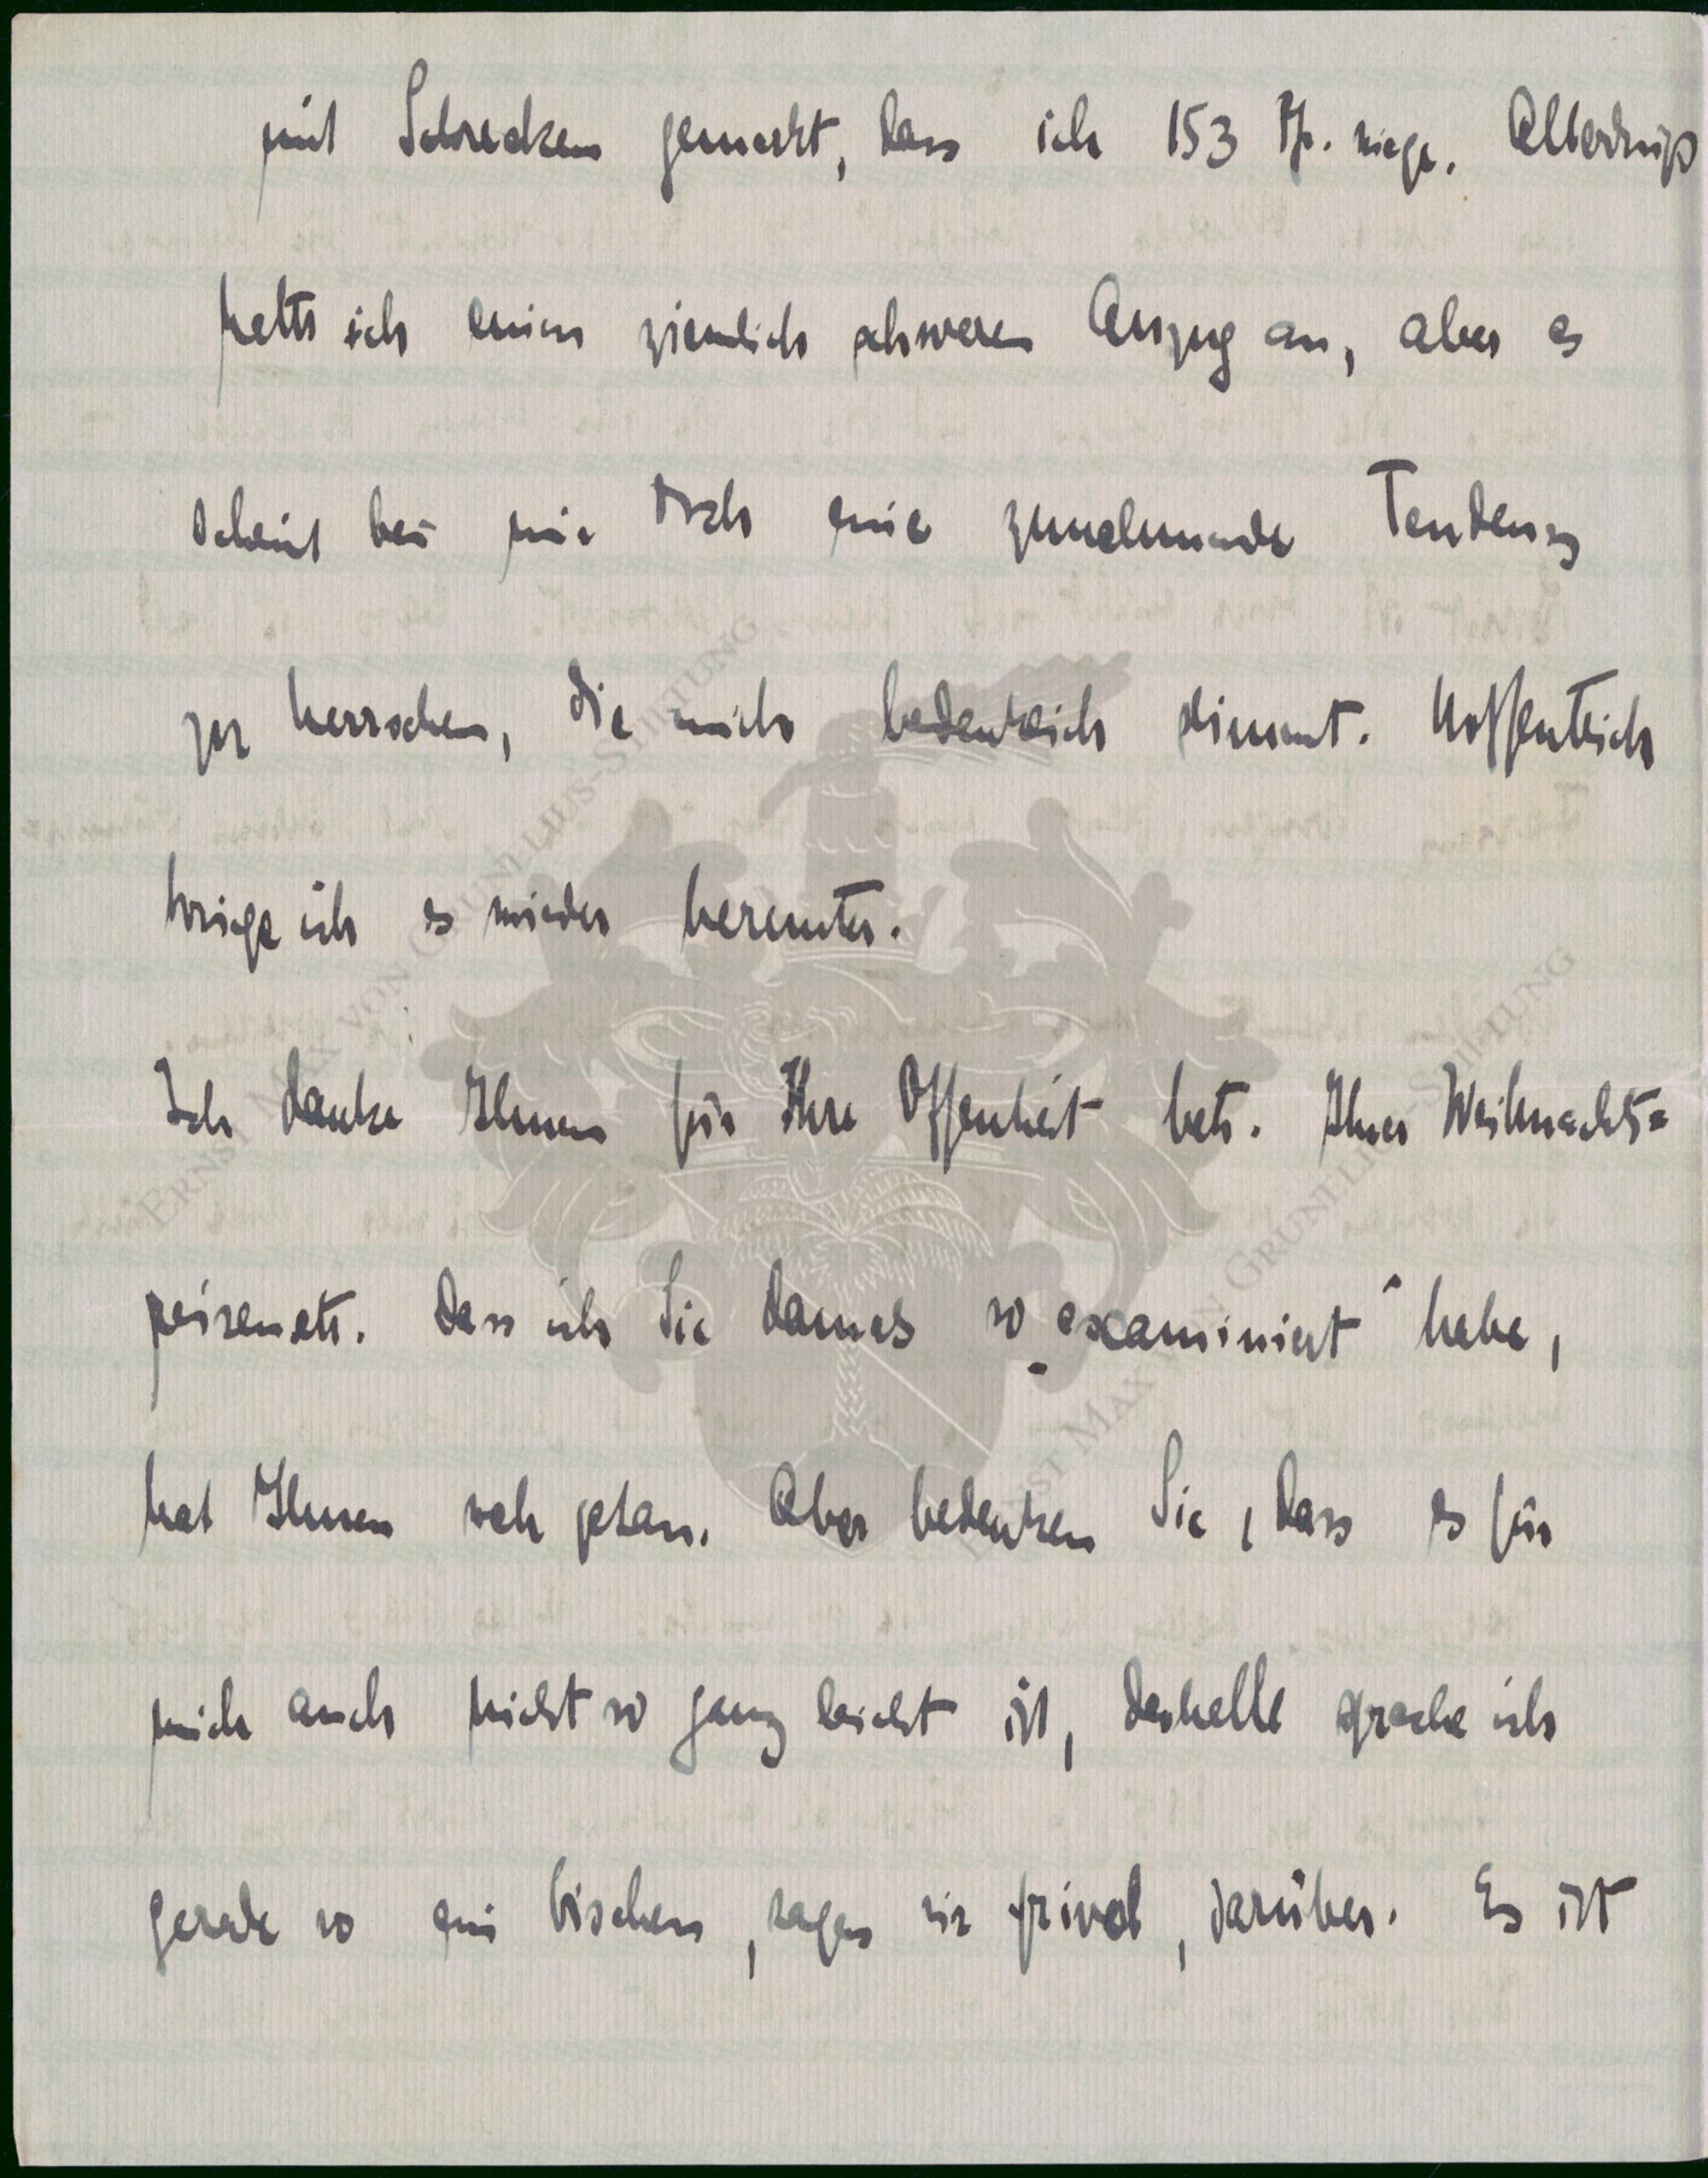 mit Schrecken gemerkt, dass ich 153 Pf. wiege. Allerdings
hatte ich einen ziemlich schweren Anzug an, aber es
scheint bei mir doch eine zunehmende Tendenz
zu herrschen, die mich bedenklich stimmt. Hoffentlich
bringe ich es wieder herunter.
Ich danke Ihnen für Ihre Offenheit betr. Ihrer Weihnachts=
reisen etc. Dass ich Sie damals so „examiniert“ habe,
hat Ihnen weh getan. Aber bedenken Sie, dass es für
mich auch nicht so ganz leicht ist, deshalb sprach ich
gerade so ein bischen, sagen wir frivol, darüber. Es ist
ERNST MAX VON GRUNELIUS-STIFTUNG
ERNST MAX VON GRUNELIUS-STIFTUNG